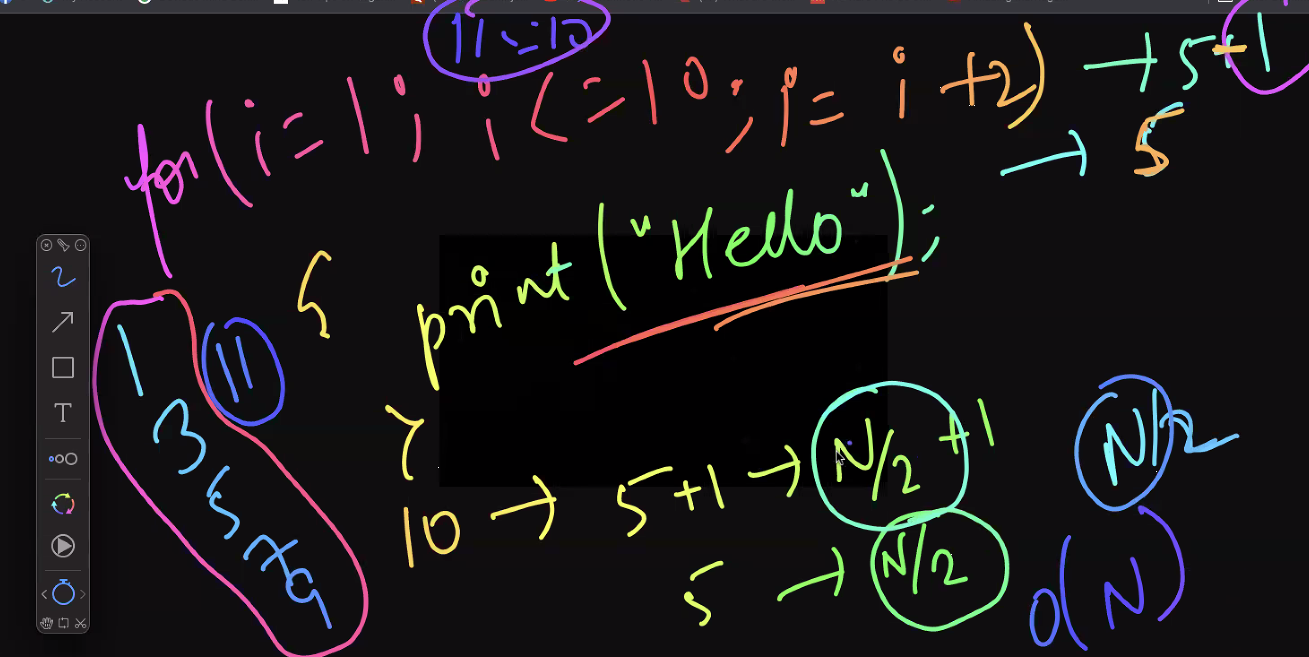 11 <= 10
for(i=1; i<=10; i=i+2) → 5+1
→ 5
{
print("Hello");
}
1 11
3
5
7
9
10 → 5+1 → N/2 +1
5 → N/2
N/2
O(N)
T